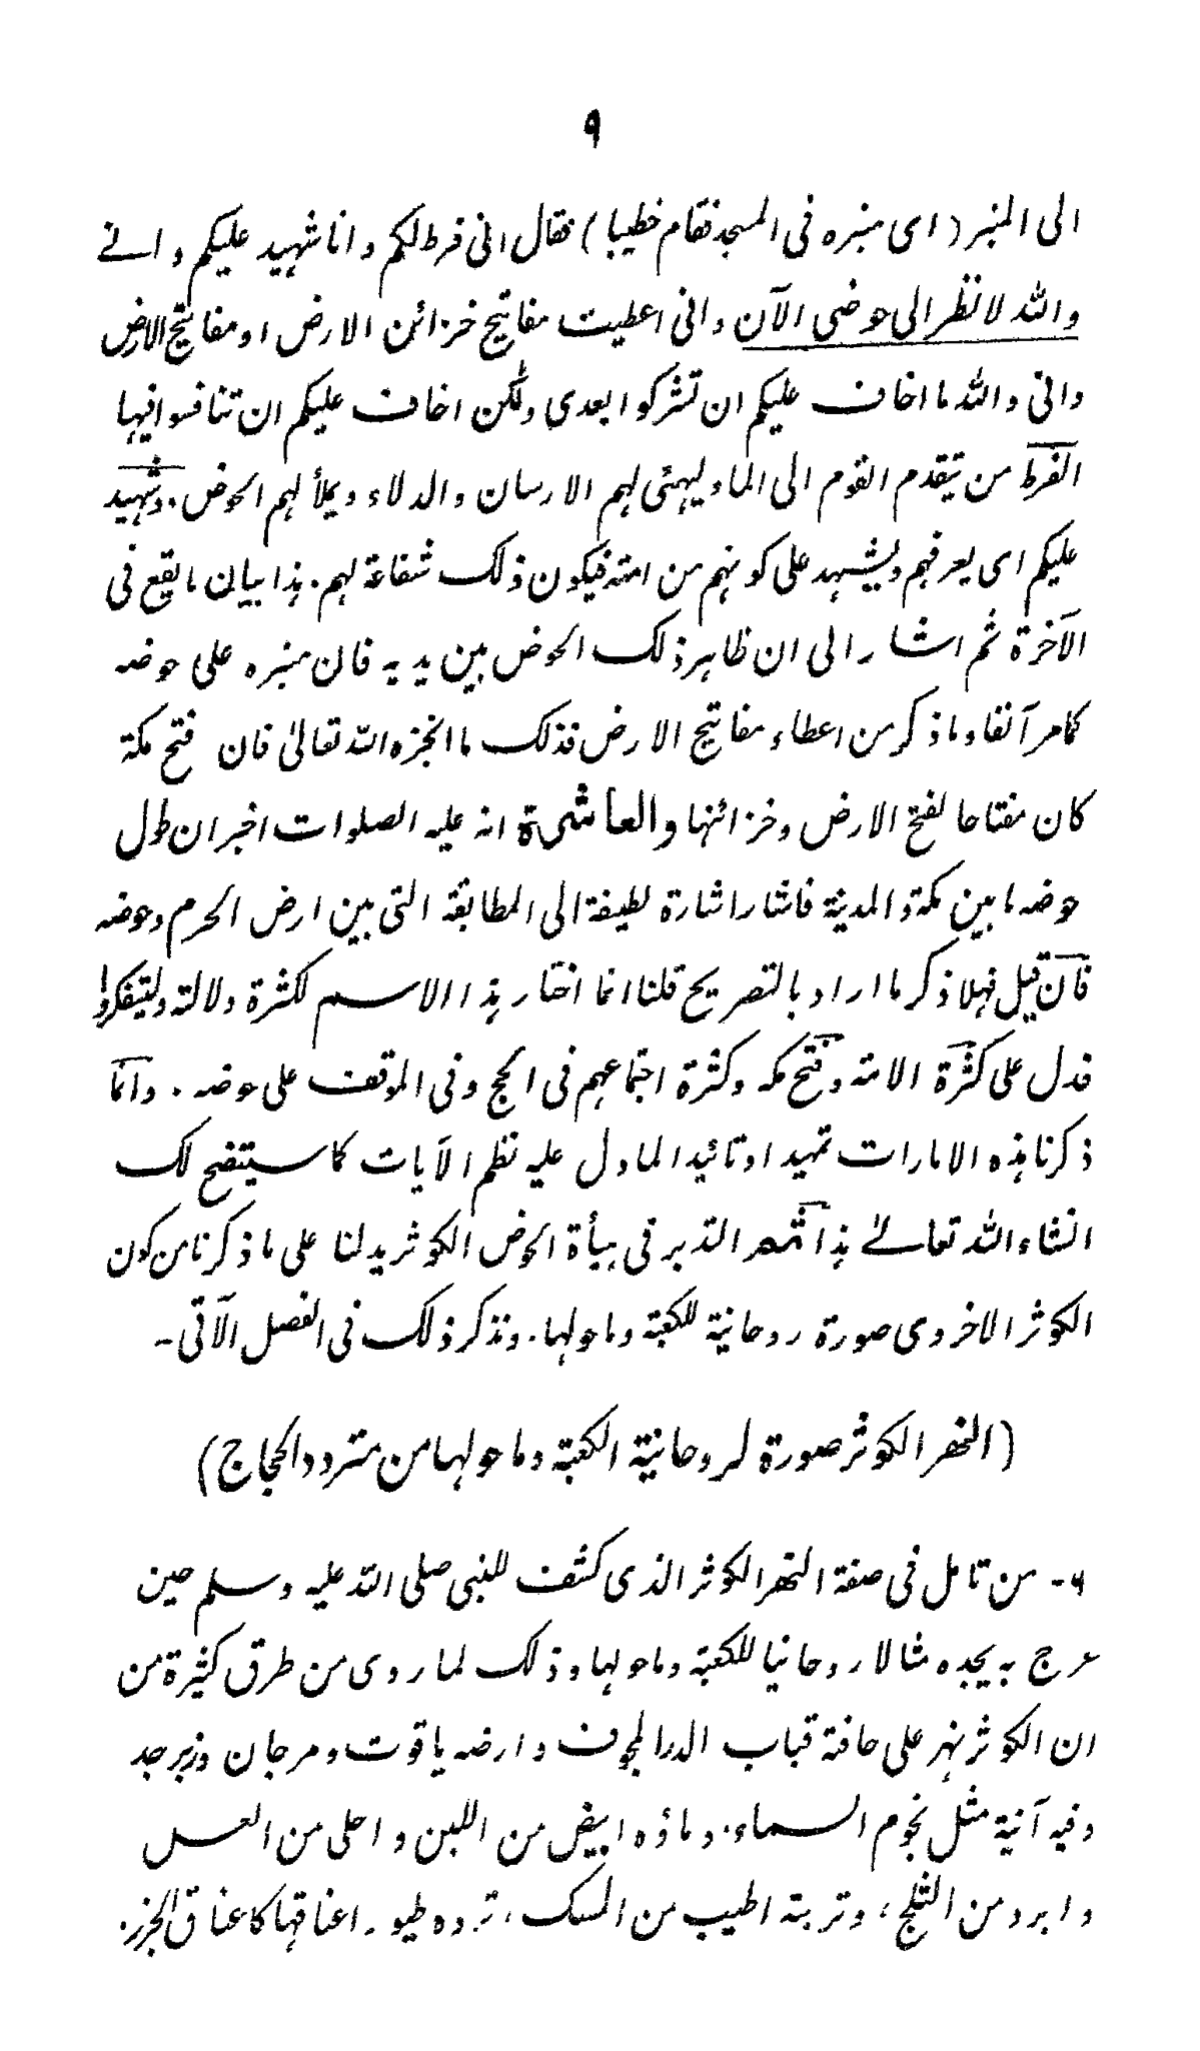 ٩
الى المنبر (اى منبره فى المسجد فقام خطيبا) فقال انى فرط لكم وانا شهيد عليكم وانى
والله لانظر الى حوضى الآن وانى اعطيت مفاتيح خزائن الارض او مفاتيح الارض
وانى والله ما اخاف عليكم ان تشركوا بعدى ولٰكن اخاف عليكم ان تنافسوا فيها
الفرط من يتقدم القوم الى الماء ليهئى لهم الارسان والدلاء ويملأ لهم الحوض. وشهيد
عليكم اى يعرفهم ويشهد على كونهم من امته فيكون ذلك شفاعة لهم. هذا بيان ما يقع فى
الآخرة ثم اشار الى ان ظاهر ذلك الحوض بين يديه فان منبره على حوضه
كما مر آنفا وما ذكر من اعطاء مفاتيح الارض فذلك ما انجزه الله تعالىٰ فان فتح مكة
كان مفتاحا لفتح الارض وخزائنها والعاشرة انه عليه الصلوات اخبر ان طول
حوضه ما بين مكة والمدينة فاشار اشارة لطيفة الى المطابقة التى بين ارض الحرم وحوضه
فان قيل فهلا ذكر ما اراد بالتصريح قلنا انما اختار هذا الاسم لكثرة دلالته وليتفكروا
فدل على كثرة الامة وفتح مكه وكثرة اجتماعهم فى الحج وفى الموقف على حوضه. وانما
ذكرنا هذه الامارات تمهيدا وتائيدا لما دل عليه نظم الآيات كما سيتضح لك
انشاء الله تعالىٰ هذا ثم التدبر فى هيأة الحوض الكوثر يدلنا على ما ذكرنا من كون
الكوثر الاخروى صورة روحانية للكعبة وما حولها. ونذكر ذلك فى الفصل الآتى -
(النهر الكوثر صورة لروحانية الكعبة وما حولها من متردد الحجاج)
٦ - من تامل فى صفة النهر الكوثر الذى كشف للنبى صلى الله عليه وسلم حين
عرج به يجده مثالا روحانيا للكعبة وما حولها وذلك لما روى من طرق كثيرة من
ان الكوثر نهر على حافة قباب الدر المجوف وارضه ياقوت ومرجان وزبرجد
وفيه آنية مثل نجوم السماء. وماؤه ابيض من اللبن واحلى من العسل
وابرد من الثلج، وتربته اطيب من المسك، ترده طيور اعناقها كاعناق الجزر.